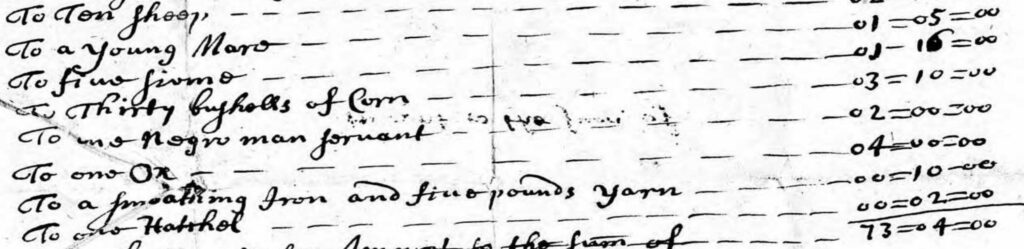 To Ten sheep
To a young Mare 01=05=00
To five swine 01-16=00
To Thirty bushells of Corn 03=10=00
To one Negro man servant 02=00=00
To one Ox 04=00=00
To a smoathing Iron and five pounds yarn 00=10=00
To one Hatchel 00=02=00
to the sum of 73=04=00